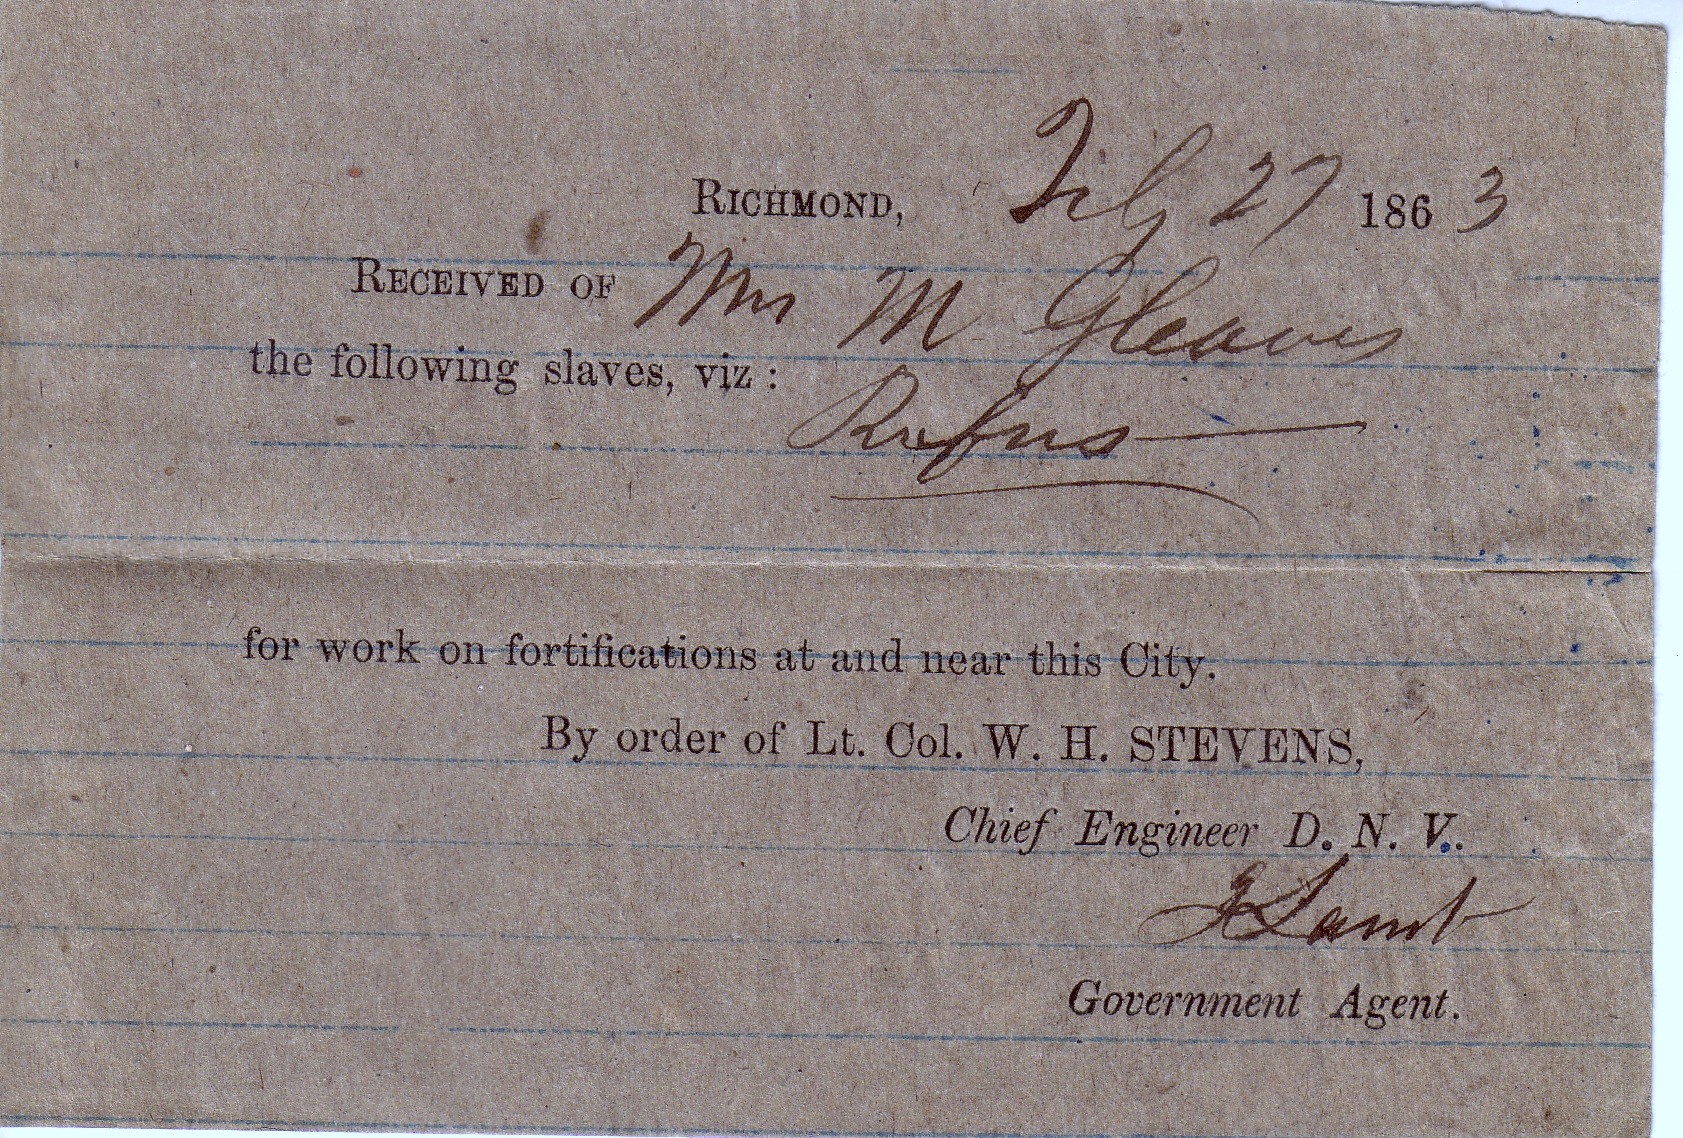 RICHMOND, Feb 27 1863
RECEIVED OF Mrs M Gleaves
the following slaves, viz:
Rufus
for work on fortifications at and near this City.
By order of Lt. Col. W. H. STEVENS,
Chief Engineer D. N. V.
J Lamb
Government Agent.